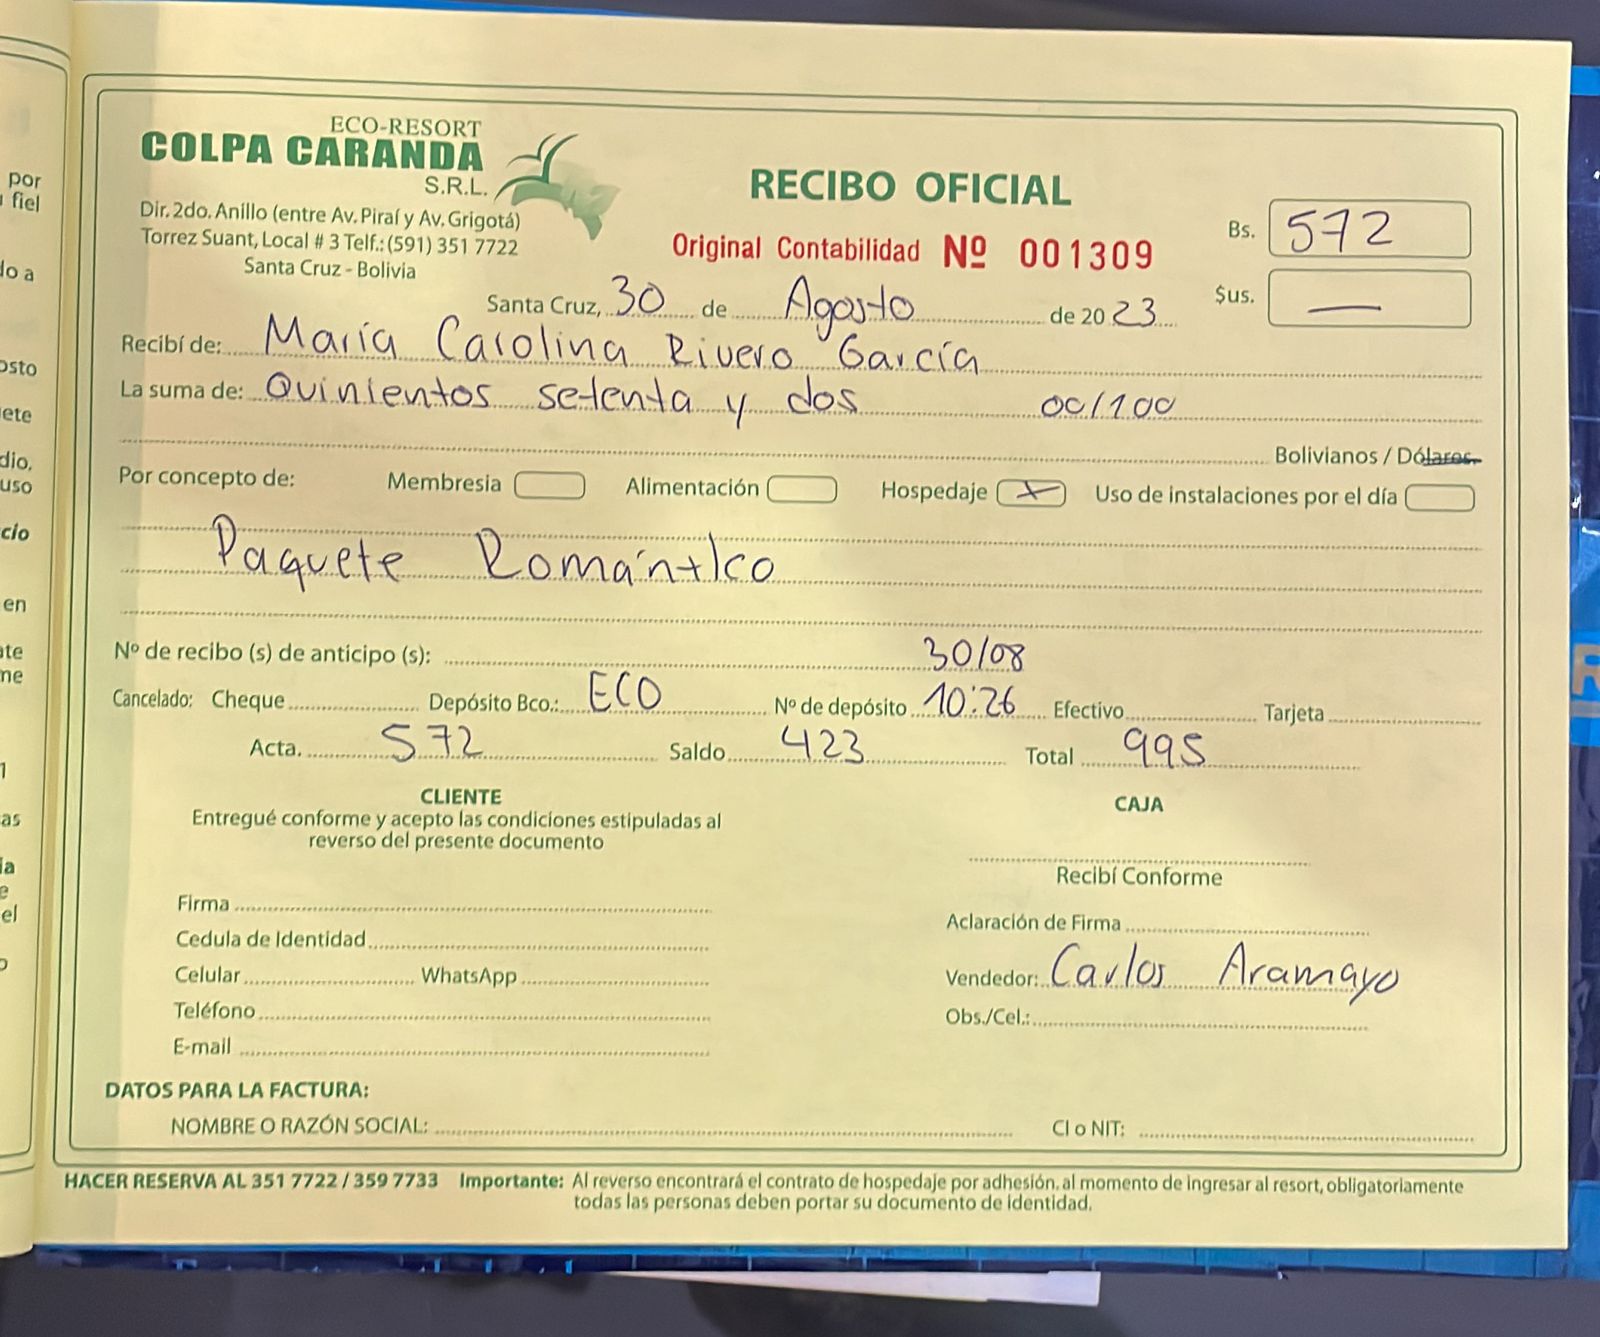 por
fiel
do a
osto
ete
dio,
uso
cio
en
ate
me
as
ia
e
el
ECO-RESORT
COLPA CARANDA
S.R.L.
Dir. 2do. Anillo (entre Av. Piraí y Av. Grigotá)
Torrez Suant, Local # 3 Telf.: (591) 351 7722
Santa Cruz - Bolivia
RECIBO OFICIAL
Original Contabilidad Nº 001309
Bs. 572
$us. —
Santa Cruz, 30 de Agosto de 20 23
Recibí de: María Carolina Rivero García
La suma de: Quinientos setenta y dos 00/100
Bolivianos / Dólares
Por concepto de: Membresia Alimentación Hospedaje X Uso de instalaciones por el día
Paquete Romántico
Nº de recibo (s) de anticipo (s): 30/08
Cancelado: Cheque Depósito Bco.: ECO Nº de depósito 10:26 Efectivo Tarjeta
Acta. 572 Saldo 423 Total 995
CLIENTE
Entregué conforme y acepto las condiciones estipuladas al
reverso del presente documento
Firma
Cedula de Identidad
Celular WhatsApp
Teléfono
E-mail
CAJA
Recibí Conforme
Aclaración de Firma
Vendedor: Carlos Aramayo
Obs./Cel.:
DATOS PARA LA FACTURA:
NOMBRE O RAZÓN SOCIAL: CI o NIT:
HACER RESERVA AL 351 7722 / 359 7733 Importante: Al reverso encontrará el contrato de hospedaje por adhesión, al momento de ingresar al resort, obligatoriamente
todas las personas deben portar su documento de identidad.